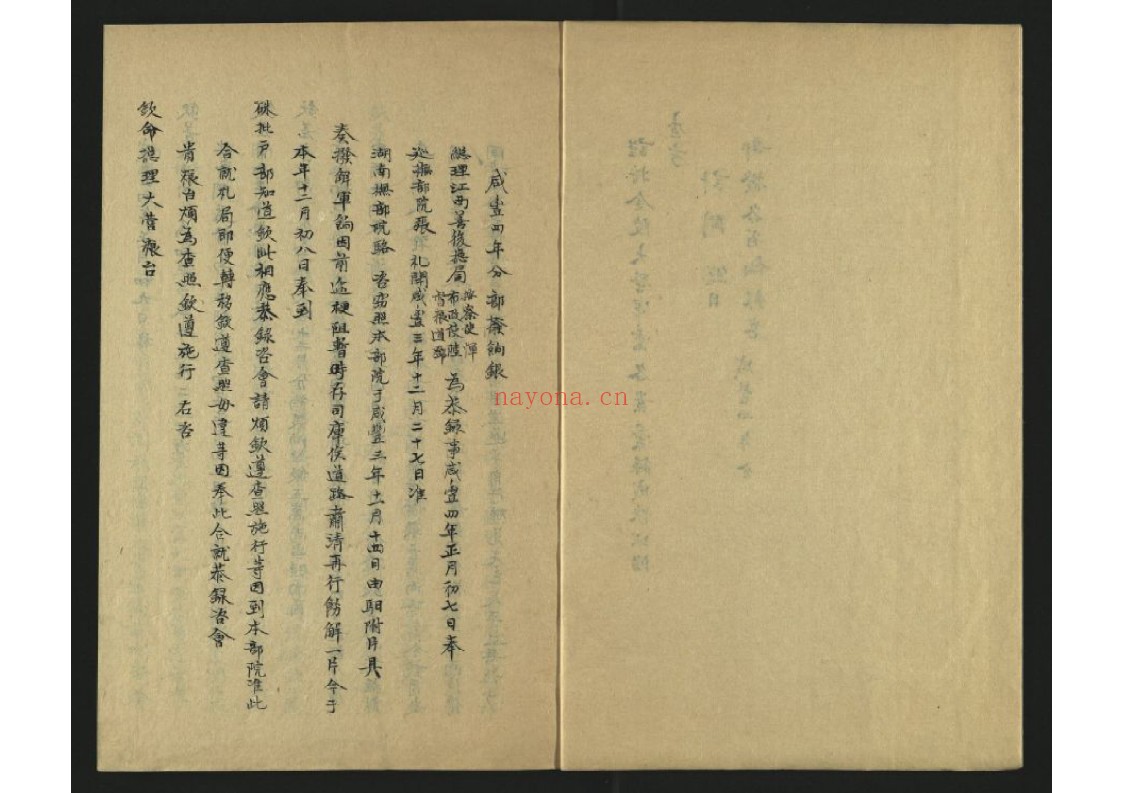 咸豐四年分 部發餉銀
總理江西善後總局 按察使惲 布政使陸 督糧道鄧 為恭錄事咸豐四年正月初七日奉
巡撫部院張 札開咸豐三年十二月二十七日准
湖南撫部院駱 咨竊照本部院于咸豐三年十一月十四日由馹附片具
奏撥解軍餉因前途梗阻暫時存司庫俟道路肅清再行餝解一片今于
本年十二月初八日奉到
硃批戶部知道欽此相應恭錄咨會請煩欽遵查照施行等因到本部院准此
合就札局即便轉移欽遵查照毋違等因奉此合就恭錄咨會
貴糧台煩為查照欽遵施行 右咨
欽命總理大營糧台
nayona.cn